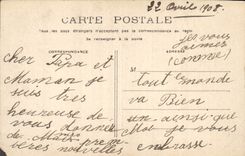 22 Avril 1908.
CARTE POSTALE
Tous les pays étrangers n'acceptent pas la correspondance au recto
Se renseigner à la poste
CORRESPONDANCE
Cher Papa et
Maman je
suis tres
heureuse de
vous donner
de
nouvelles
je vous
aimes
tout monde
va Bien
ainsi que
Moi je vous
embrasse